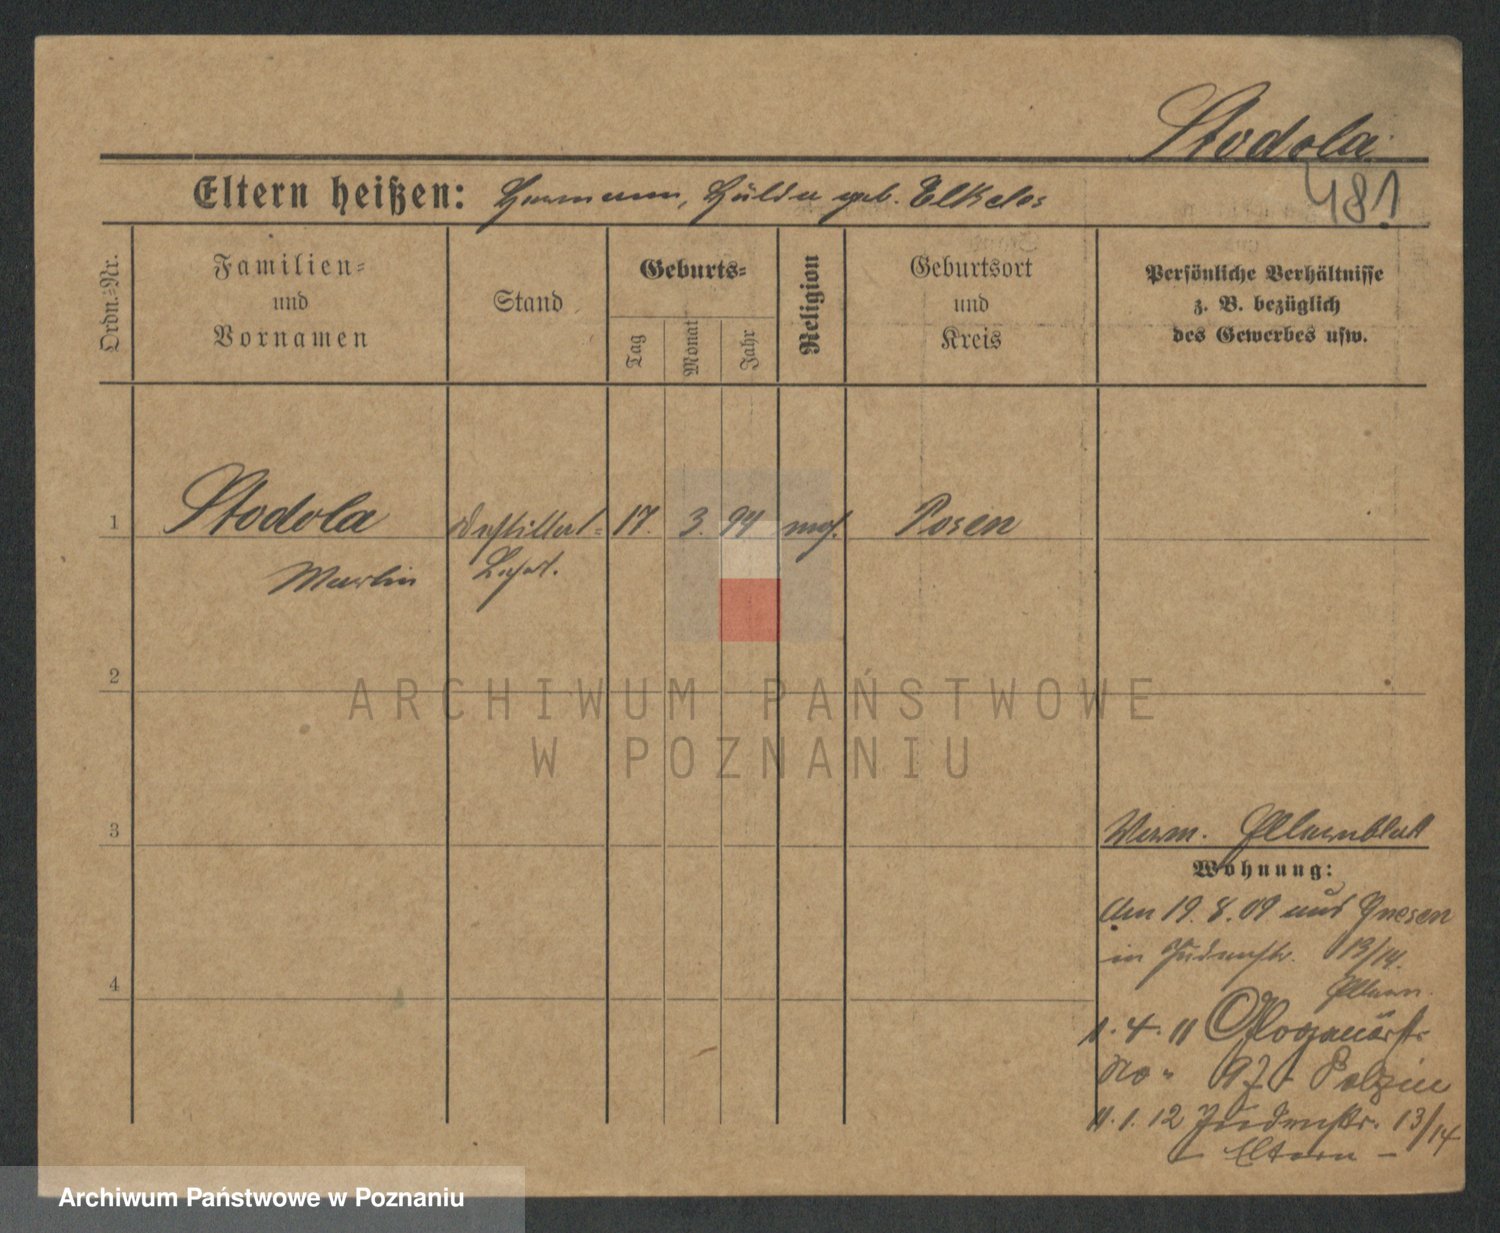 Stodola
481
Eltern heißen: Hermann, Hulda geb. Elkeles
Ordn.-Nr.
Familien- und Vornamen
Stand
Geburts-
Tag
Monat
Jahr
Religion
Geburtsort und Kreis
Persönliche Verhältnisse
z. B. bezüglich
des Gewerbes usw.
1
Stodola
Destillat.-
17.
3.
94
mos.
Posen
Martin
Lehrl.
2
ARCHIWUM PAŃSTWOWE
W POZNANIU
3
Verm. Elternblatt
Wohnung:
Am 19. 8. 09 aus Gnesen
in Judenstr. 13/14.
4
Eltern.
1. 4. 11 Glogauerstr.
No 97
11. 1. 12 Judenstr. 13/14
– Eltern –
Archiwum Państwowe w Poznaniu